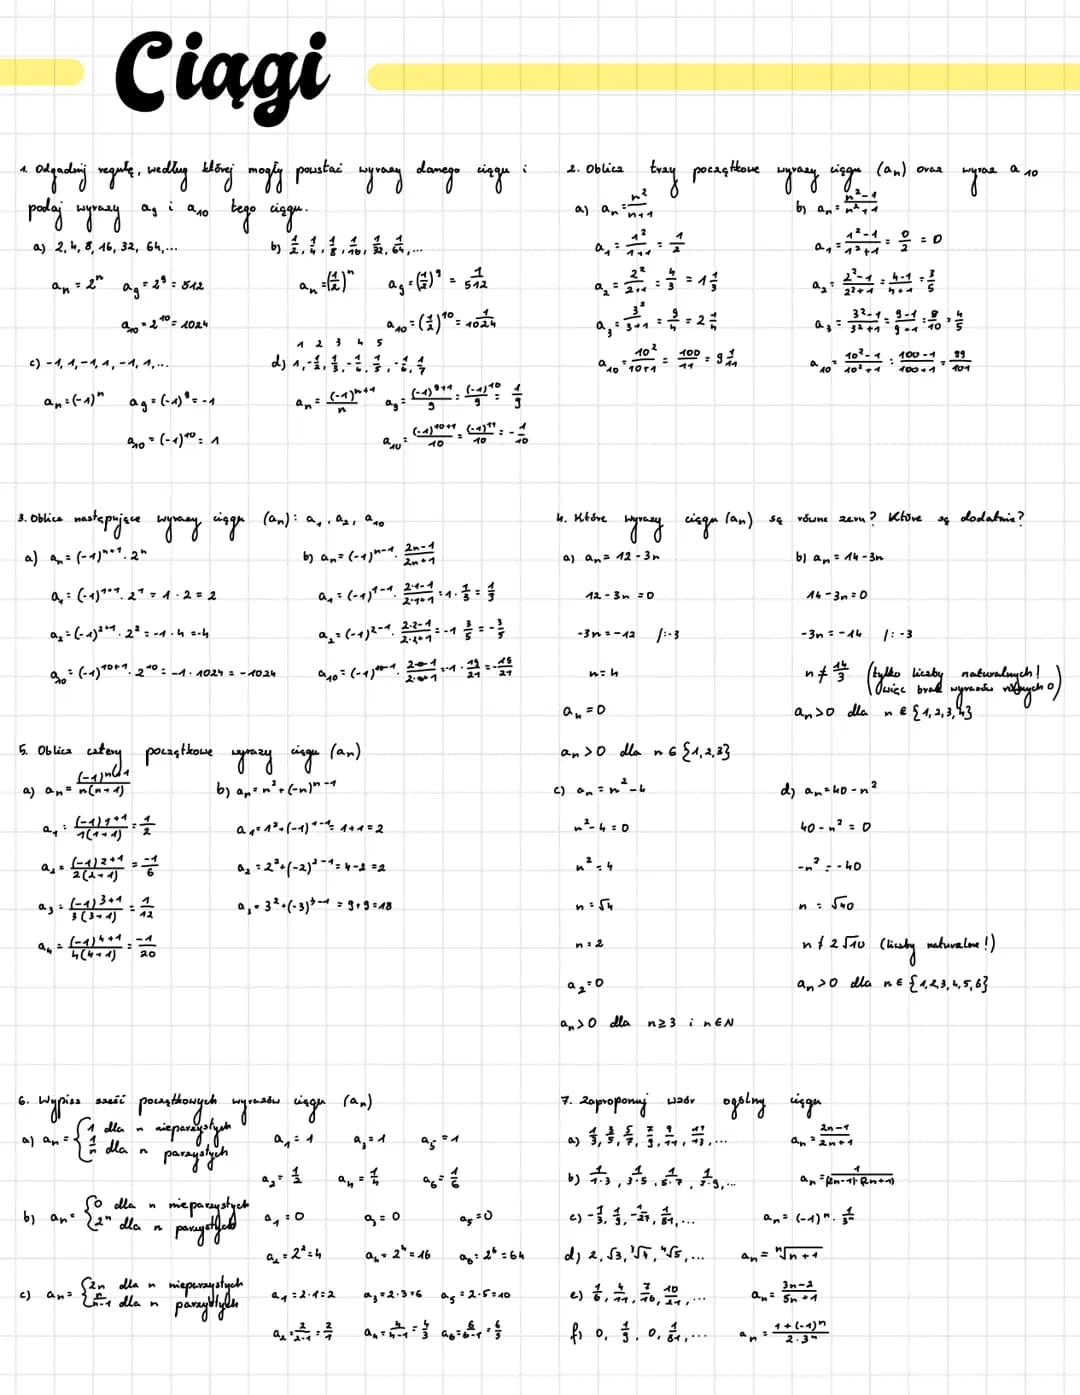 Ciągi
1. Odgadnij regułę, według której mogły powstać wyrazy danego ciągu i
podaj wyrazy a₉ i a₁₀ tego ciągu.
a) 2, 4, 8, 16, 32, 64,...
aₙ = 2ⁿ a₉ = 2⁹ = 512
a₁₀ = 2¹⁰ = 1024
b) 1/2, 1/4, 1/8, 1/16, 1/32, 1/64,...
aₙ = (1/2)ⁿ a₉ = (1/2)⁹ = 1/512
a₁₀ = (1/2)¹⁰ = 1/1024
c) -1, 1, -1, 1, -1, 1,...
aₙ = (-1)ⁿ a₉ = (-1)⁹ = -1
a₁₀ = (-1)¹⁰ = 1
1 2 3 4 5
d) 1, -1/2, 1/3, -1/4, 1/5, -1/6, 1/7
aₙ = (-1)ⁿ⁺¹/n a₉ = (-1)⁹⁺¹/9 = (-1)¹⁰/9 = 1/9
a₁₀ = (-1)¹⁰⁺¹/10 = (-1)¹¹/10 = -1/10
2. Oblicz trzy początkowe wyrazy ciągu (aₙ) oraz wyraz a₁₀
a) aₙ = n²/n+1
a₁ = 1²/1+1 = 1/2
a₂ = 2²/2+1 = 4/3 = 1 1/3
a₃ = 3²/3+1 = 9/4 = 2 1/4
a₁₀ = 10²/10+1 = 100/11 = 9 1/11
b) aₙ = n²-1/n²+1
a₁ = 1²-1/1²+1 = 0/2 = 0
a₂ = 2²-1/2²+1 = 4-1/4+1 = 3/5
a₃ = 3²-1/3²+1 = 9-1/9+1 = 8/10 = 4/5
a₁₀ = 10²-1/10²+1 = 100-1/100+1 = 99/101
3. Oblicz następujące wyrazy ciągu (aₙ): a₁, a₂, a₁₀
a) aₙ = (-1)ⁿ⁺¹ · 2ⁿ
a₁ = (-1)¹⁺¹ · 2¹ = 1 · 2 = 2
a₂ = (-1)²⁺¹ · 2² = -1 · 4 = -4
a₁₀ = (-1)¹⁰⁺¹ · 2¹⁰ = -1 · 1024 = -1024
b) aₙ = (-1)ⁿ⁻¹ · 2n-1/2n+1
a₁ = (-1)¹⁻¹ · 2·1-1/2·1+1 = 1 · 1/3 = 1/3
a₂ = (-1)²⁻¹ · 2·2-1/2·2+1 = -1 · 3/5 = -3/5
a₁₀ = (-1)¹⁰⁻¹ · 2·10-1/2·10+1 = -1 · 19/21 = -19/21
4. Które wyrazy ciągu (aₙ) są równe zeru? Które są dodatnie?
a) aₙ = 12-3n
12-3n = 0
-3n = -12 /:-3
n = 4
a₄ = 0
aₙ>0 dla n ∈ {1,2,3}
b) aₙ = 14-3n
14-3n = 0
-3n = -14 /:-3
n ≠ 14/3 (tylko liczby naturalnych! więc brak wyrazów równych 0)
aₙ>0 dla n ∈ {1,2,3,4}
c) aₙ = n²-4
n²-4 = 0
n² = 4
n = √4
n = 2
a₂ = 0
aₙ>0 dla n≥3 i n∈N
d) aₙ = 40-n²
40-n² = 0
-n² = -40
n = √40
n ≠ 2√10 (liczby naturalne!)
aₙ>0 dla n ∈ {1,2,3,4,5,6}
5. Oblicz cztery początkowe wyrazy ciągu (aₙ)
a) aₙ = (-1)ⁿ⁺¹/n(n+1)
a₁ = (-1)1+1/1(1+1) = 1/2
a₂ = (-1)2+1/2(2+1) = -1/6
a₃ = (-1)3+1/3(3+1) = 1/12
a₄ = (-1)4+1/4(4+1) = -1/20
b) aₙ = n²+(-n)ⁿ⁻¹
a₁ = 1²+(-1)¹⁻¹ = 1+1 = 2
a₂ = 2²+(-2)²⁻¹ = 4-2 = 2
a₃ = 3²+(-3)³⁻¹ = 9+9 = 18
6. Wypisz sześć początkowych wyrazów ciągu (aₙ)
a) aₙ = {1 dla n nieparzystych
1/n dla n parzystych
a₁ = 1 a₃ = 1 a₅ = 1
a₂ = 1/2 a₄ = 1/4 a₆ = 1/6
b) aₙ = {0 dla n nieparzystych
2ⁿ dla n parzystych
a₁ = 0 a₃ = 0 a₅ = 0
a₂ = 2² = 4 a₄ = 2⁴ = 16 a₆ = 2⁶ = 64
c) aₙ = {2n dla n nieparzystych
n/n-1 dla n parzystych
a₁ = 2·1 = 2 a₃ = 2·3 = 6 a₅ = 2·5 = 10
a₂ = 2/2-1 = 2/1 a₄ = 4/4-1 = 4/3 a₆ = 6/6-1 = 6/5
7. Zaproponuj wzór ogólny ciągu
a) 1/3, 3/5, 5/7, 7/9, 9/11, 11/13,... aₙ = 2n-1/2n+1
b) 1/1·3, 1/3·5, 1/5·7, 1/7·9,... aₙ = 1/(2n-1)·(2n+1)
c) -1/3, 1/9, -1/27, 1/81,... aₙ = (-1)ⁿ · 1/3ⁿ
d) 2, √3, ³√4, ⁴√5,... aₙ = ⁿ√n+1
e) 1/6, 4/11, 7/16, 10/21,... aₙ = 3n-2/5n+1
f) 0, 1/9, 0, 1/81,... aₙ = 1+(-1)ⁿ/2·3ⁿ